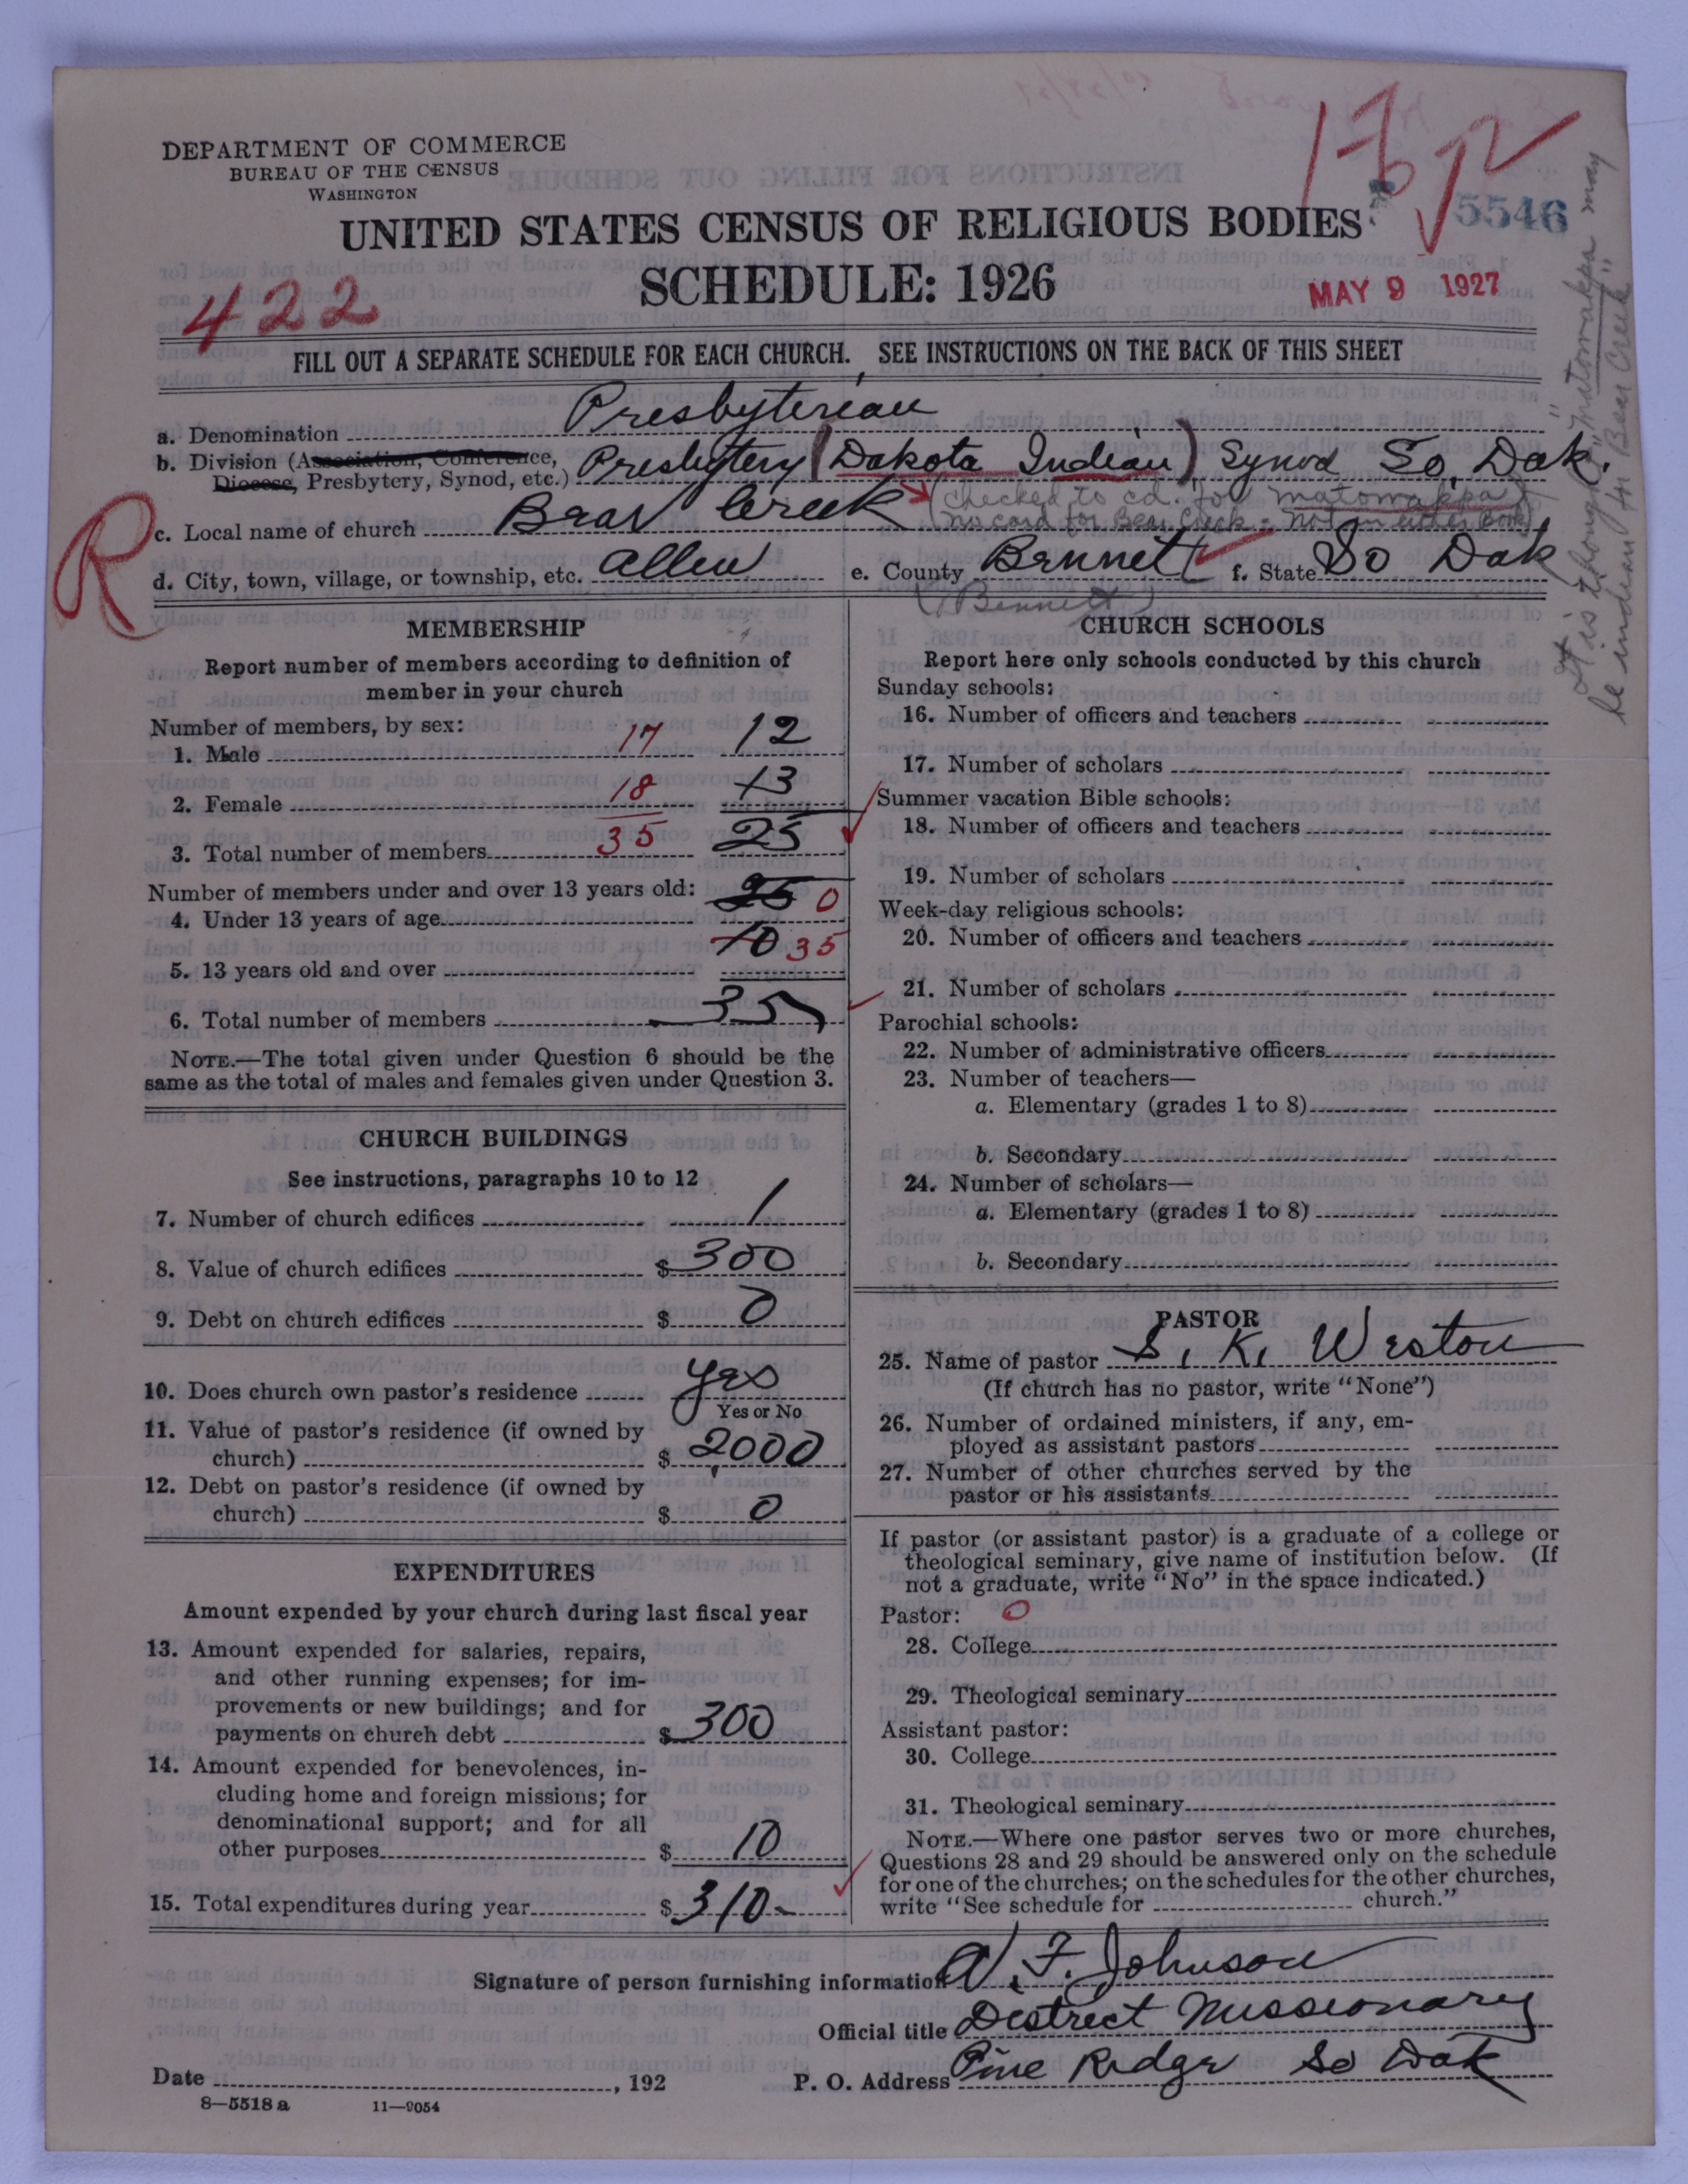 DEPARTMENT OF COMMERCE
BUREAU OF THE CENSUS
WASHINGTON
UNITED STATES CENSUS OF RELIGIOUS BODIES
5546
SCHEDULE: 1926
MAY 9 1927
422
FILL OUT A SEPARATE SCHEDULE FOR EACH CHURCH. SEE INSTRUCTIONS ON THE BACK OF THIS SHEET
a. Denomination Presbyterian
b. Division (Association, Conference, Diocese, Presbytery, Synod, etc.) Presbytery (Dakota Indian) Synod So. Dak.
(Checked to cd. for "Matowakpa")
c. Local name of church Bear Creek
(No card for Bear Creek - Not in either book)
R
d. City, town, village, or township, etc. Allen e. County Bennett f. State So Dak
(Bennett)
It is thought "Matowakpa" may
be indian for "Bear Creek"
MEMBERSHIP
Report number of members according to definition of
member in your church
Number of members, by sex:
1. Male 17 12
2. Female 18 13
3. Total number of members 35 25
Number of members under and over 13 years old:
4. Under 13 years of age 25 0
5. 13 years old and over 10 35
6. Total number of members 35
NOTE.—The total given under Question 6 should be the
same as the total of males and females given under Question 3.
CHURCH BUILDINGS
See instructions, paragraphs 10 to 12
7. Number of church edifices 1
8. Value of church edifices $ 300
9. Debt on church edifices $ 0
10. Does church own pastor's residence yes
Yes or No
11. Value of pastor's residence (if owned by
church) $ 2000
12. Debt on pastor's residence (if owned by
church) $ 0
EXPENDITURES
Amount expended by your church during last fiscal year
13. Amount expended for salaries, repairs,
and other running expenses; for im-
provements or new buildings; and for
payments on church debt $ 300
14. Amount expended for benevolences, in-
cluding home and foreign missions; for
denominational support; and for all
other purposes $ 10
15. Total expenditures during year $ 310-
CHURCH SCHOOLS
Report here only schools conducted by this church
Sunday schools:
16. Number of officers and teachers
17. Number of scholars
Summer vacation Bible schools:
18. Number of officers and teachers
19. Number of scholars
Week-day religious schools:
20. Number of officers and teachers
21. Number of scholars
Parochial schools:
22. Number of administrative officers
23. Number of teachers—
a. Elementary (grades 1 to 8)
b. Secondary
24. Number of scholars—
a. Elementary (grades 1 to 8)
b. Secondary
PASTOR
25. Name of pastor S. K. Weston
(If church has no pastor, write "None")
26. Number of ordained ministers, if any, em-
ployed as assistant pastors
27. Number of other churches served by the
pastor or his assistants
If pastor (or assistant pastor) is a graduate of a college or
theological seminary, give name of institution below. (If
not a graduate, write "No" in the space indicated.)
Pastor: 0
28. College
29. Theological seminary
Assistant pastor:
30. College
31. Theological seminary
NOTE.—Where one pastor serves two or more churches,
Questions 28 and 29 should be answered only on the schedule
for one of the churches; on the schedules for the other churches,
write "See schedule for church."
Signature of person furnishing information A. F. Johnson
Official title Destrect Missionary
Date , 192 P. O. Address Pine Ridge So Dak
8—5518 a 11—9054